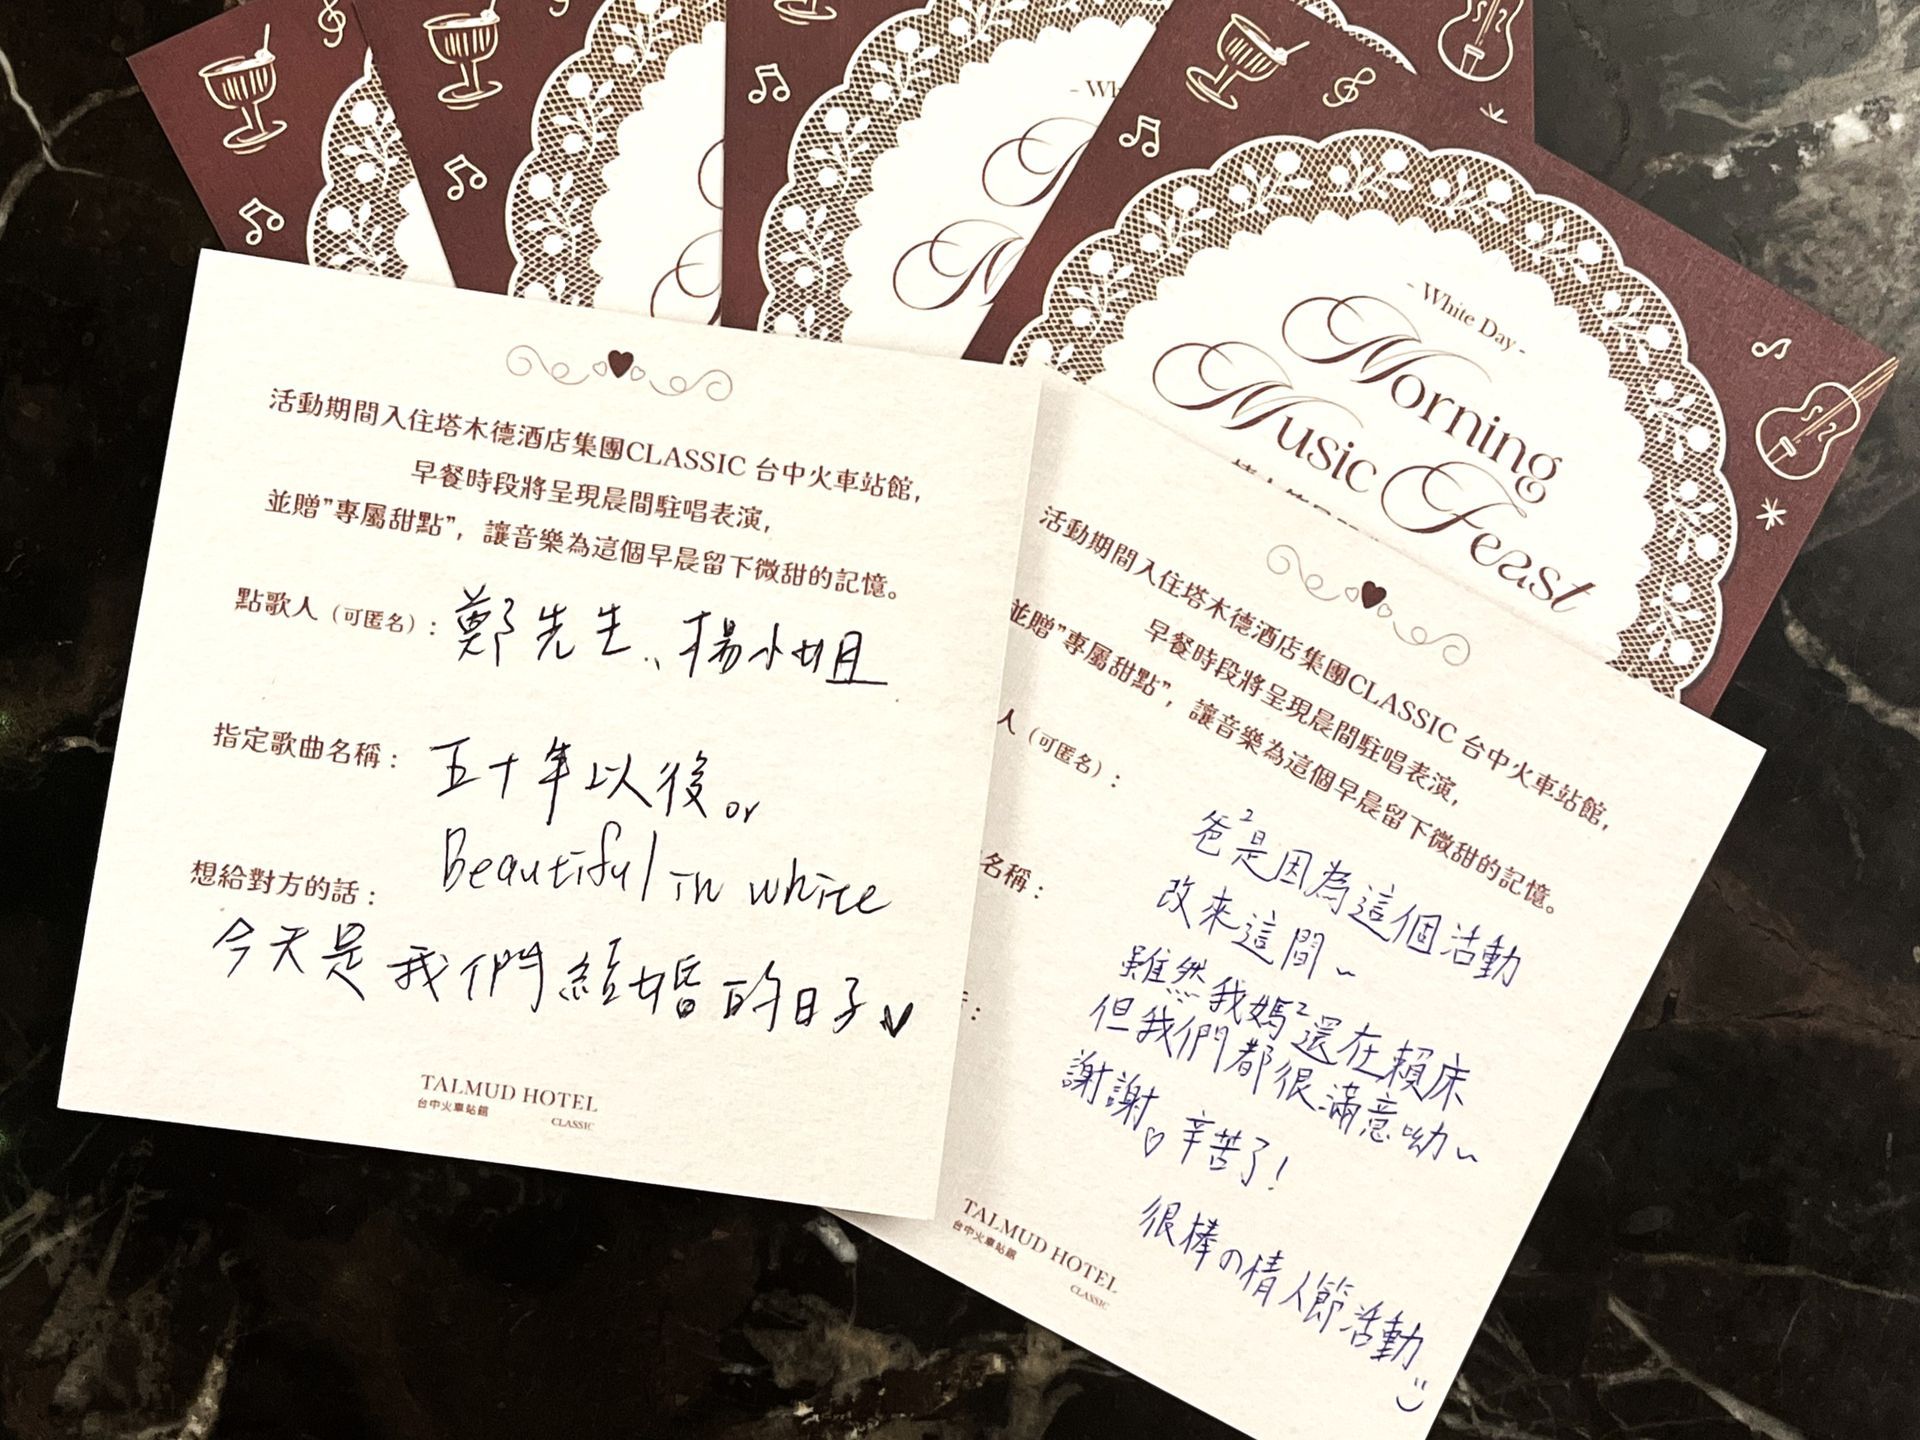 - Wh
- White Day -
Morning
Music Feast
活動期間入住塔木德酒店集團CLASSIC 台中火車站館，
早餐時段將呈現晨間駐唱表演，
並贈”專屬甜點”，讓音樂為這個早晨留下微甜的記憶。
點歌人（可匿名）：鄭先生、楊小姐
指定歌曲名稱：五十年以後 or
Beautiful in white
想給對方的話：
今天是我們結婚的日子♥
TALMUD HOTEL
台中火車站館
CLASSIC
活動期間入住塔木德酒店集團CLASSIC 台中火車站館，
早餐時段將呈現晨間駐唱表演，
並贈”專屬甜點”，讓音樂為這個早晨留下微甜的記憶。
人（可匿名）：
名稱：
爸2是因為這個活動
改來這間~
雖然我媽2還在賴床
但我們都很滿意呦~
謝謝♡辛苦了!
很棒の情人節活動
TALMUD HOTEL
台中火車站館
CLASSIC